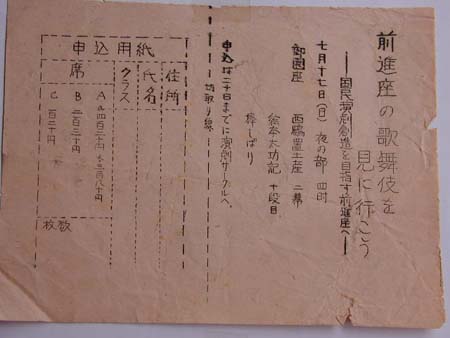 前進座の歌舞伎を
見に行こう
――国民演劇創造を目指す前進座へ――
七月十七日(日) 夜の部 四時
御園座 西鶴置土産 二幕
絵本太功記 十段目
棒しばり
申込は二十日までに演劇サークルへ。
切取り線
申込用紙
住所
氏名
クラス
席
A
B 二百三十円
C 百三十円
枚数